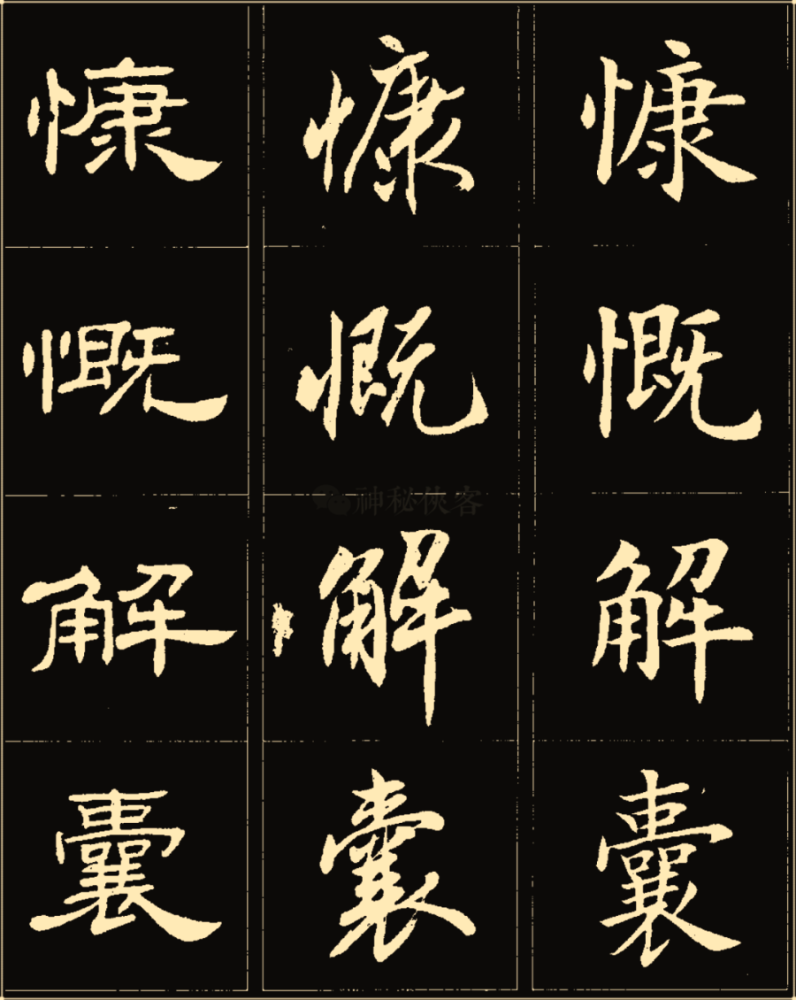 慷慨解囊
慷慨解囊
慷慨解囊
神秘俠客